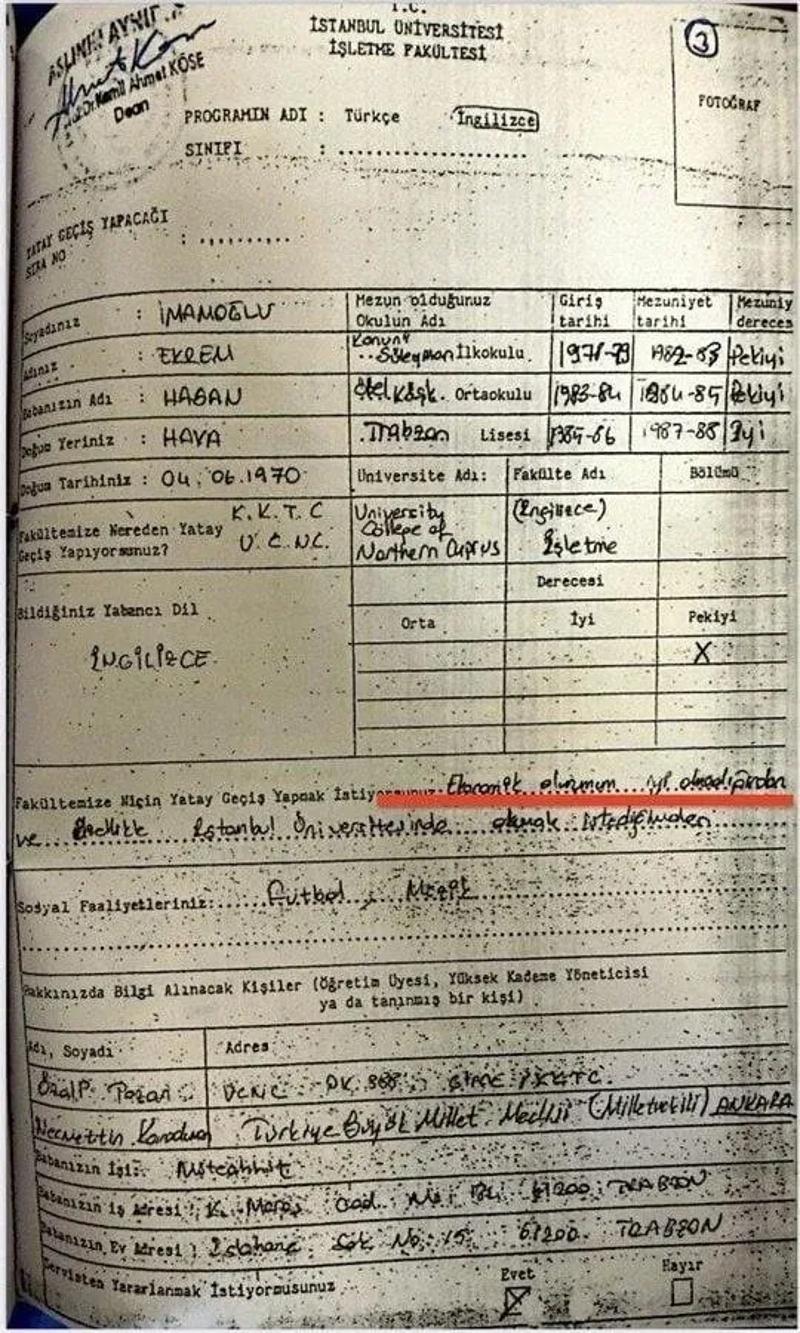 T.C.
İSTANBUL ÜNİVERSİTESİ
İŞLETME FAKÜLTESİ
3
ASLININ AYNIDIR
Prof.Dr. Kamil Ahmet KÖSE
Dean
FOTOĞRAF
PROGRAMIN ADI : Türkçe İngilizce
SINIFI : ........................
YATAY GEÇİŞ YAPACAĞI
SIRA NO : ..........
Soyadınız : İMAMOĞLU
Adınız : EKREM
Babanızın Adı : HASAN
Doğum Yeriniz : HAVA
Doğum Tarihiniz : 04.06.1970
Fakültemize Nereden Yatay Geçiş Yapıyorsunuz? K.K.T.C U.C.N.C.
Mezun olduğunuz Okulun Adı Giriş tarihi Mezuniyet tarihi Mezuniy dereces
Kanuni Süleyman İlkokulu 1978-79 1982-83 Pekiyi
Ortaokulu 1983-84 1984-85 Pekiyi
Trabzon Lisesi 1985-86 1987-88 İyi
Üniversite Adı: Fakülte Adı Bölümü
University College of Northern Cyprus (İngilizce) İşletme
Derecesi
Bildiğiniz Yabancı Dil Orta İyi Pekiyi
İNGİLİZCE X
Fakültemize Niçin Yatay Geçiş Yapmak İstiyorsunuz: Ekonomik durumun iyi olmadığından
ve özellikle İstanbul Üniversitesinde okumak istediğimden
Sosyal Faaliyetleriniz: Futbol, Müzik
Hakkınızda Bilgi Alınacak Kişiler (Öğretim Üyesi, Yüksek Kademe Yöneticisi
ya da tanınmış bir kişi)
Adı, Soyadı Adres
UCNC PK 388 GİRNE / KKTC.
Necmettin Karaduman Türkiye Büyük Millet Meclisi (Milletvekili) ANKARA
Babanızın İşi: Müteahhit
Babanızın İş Adresi: K. Maraş Cad. No: 61200 TRABZON
Babanızın Ev Adresi: Sok No: 15 61200 TRABZON
Servisten Yararlanmak İstiyormusunuz Evet Hayır